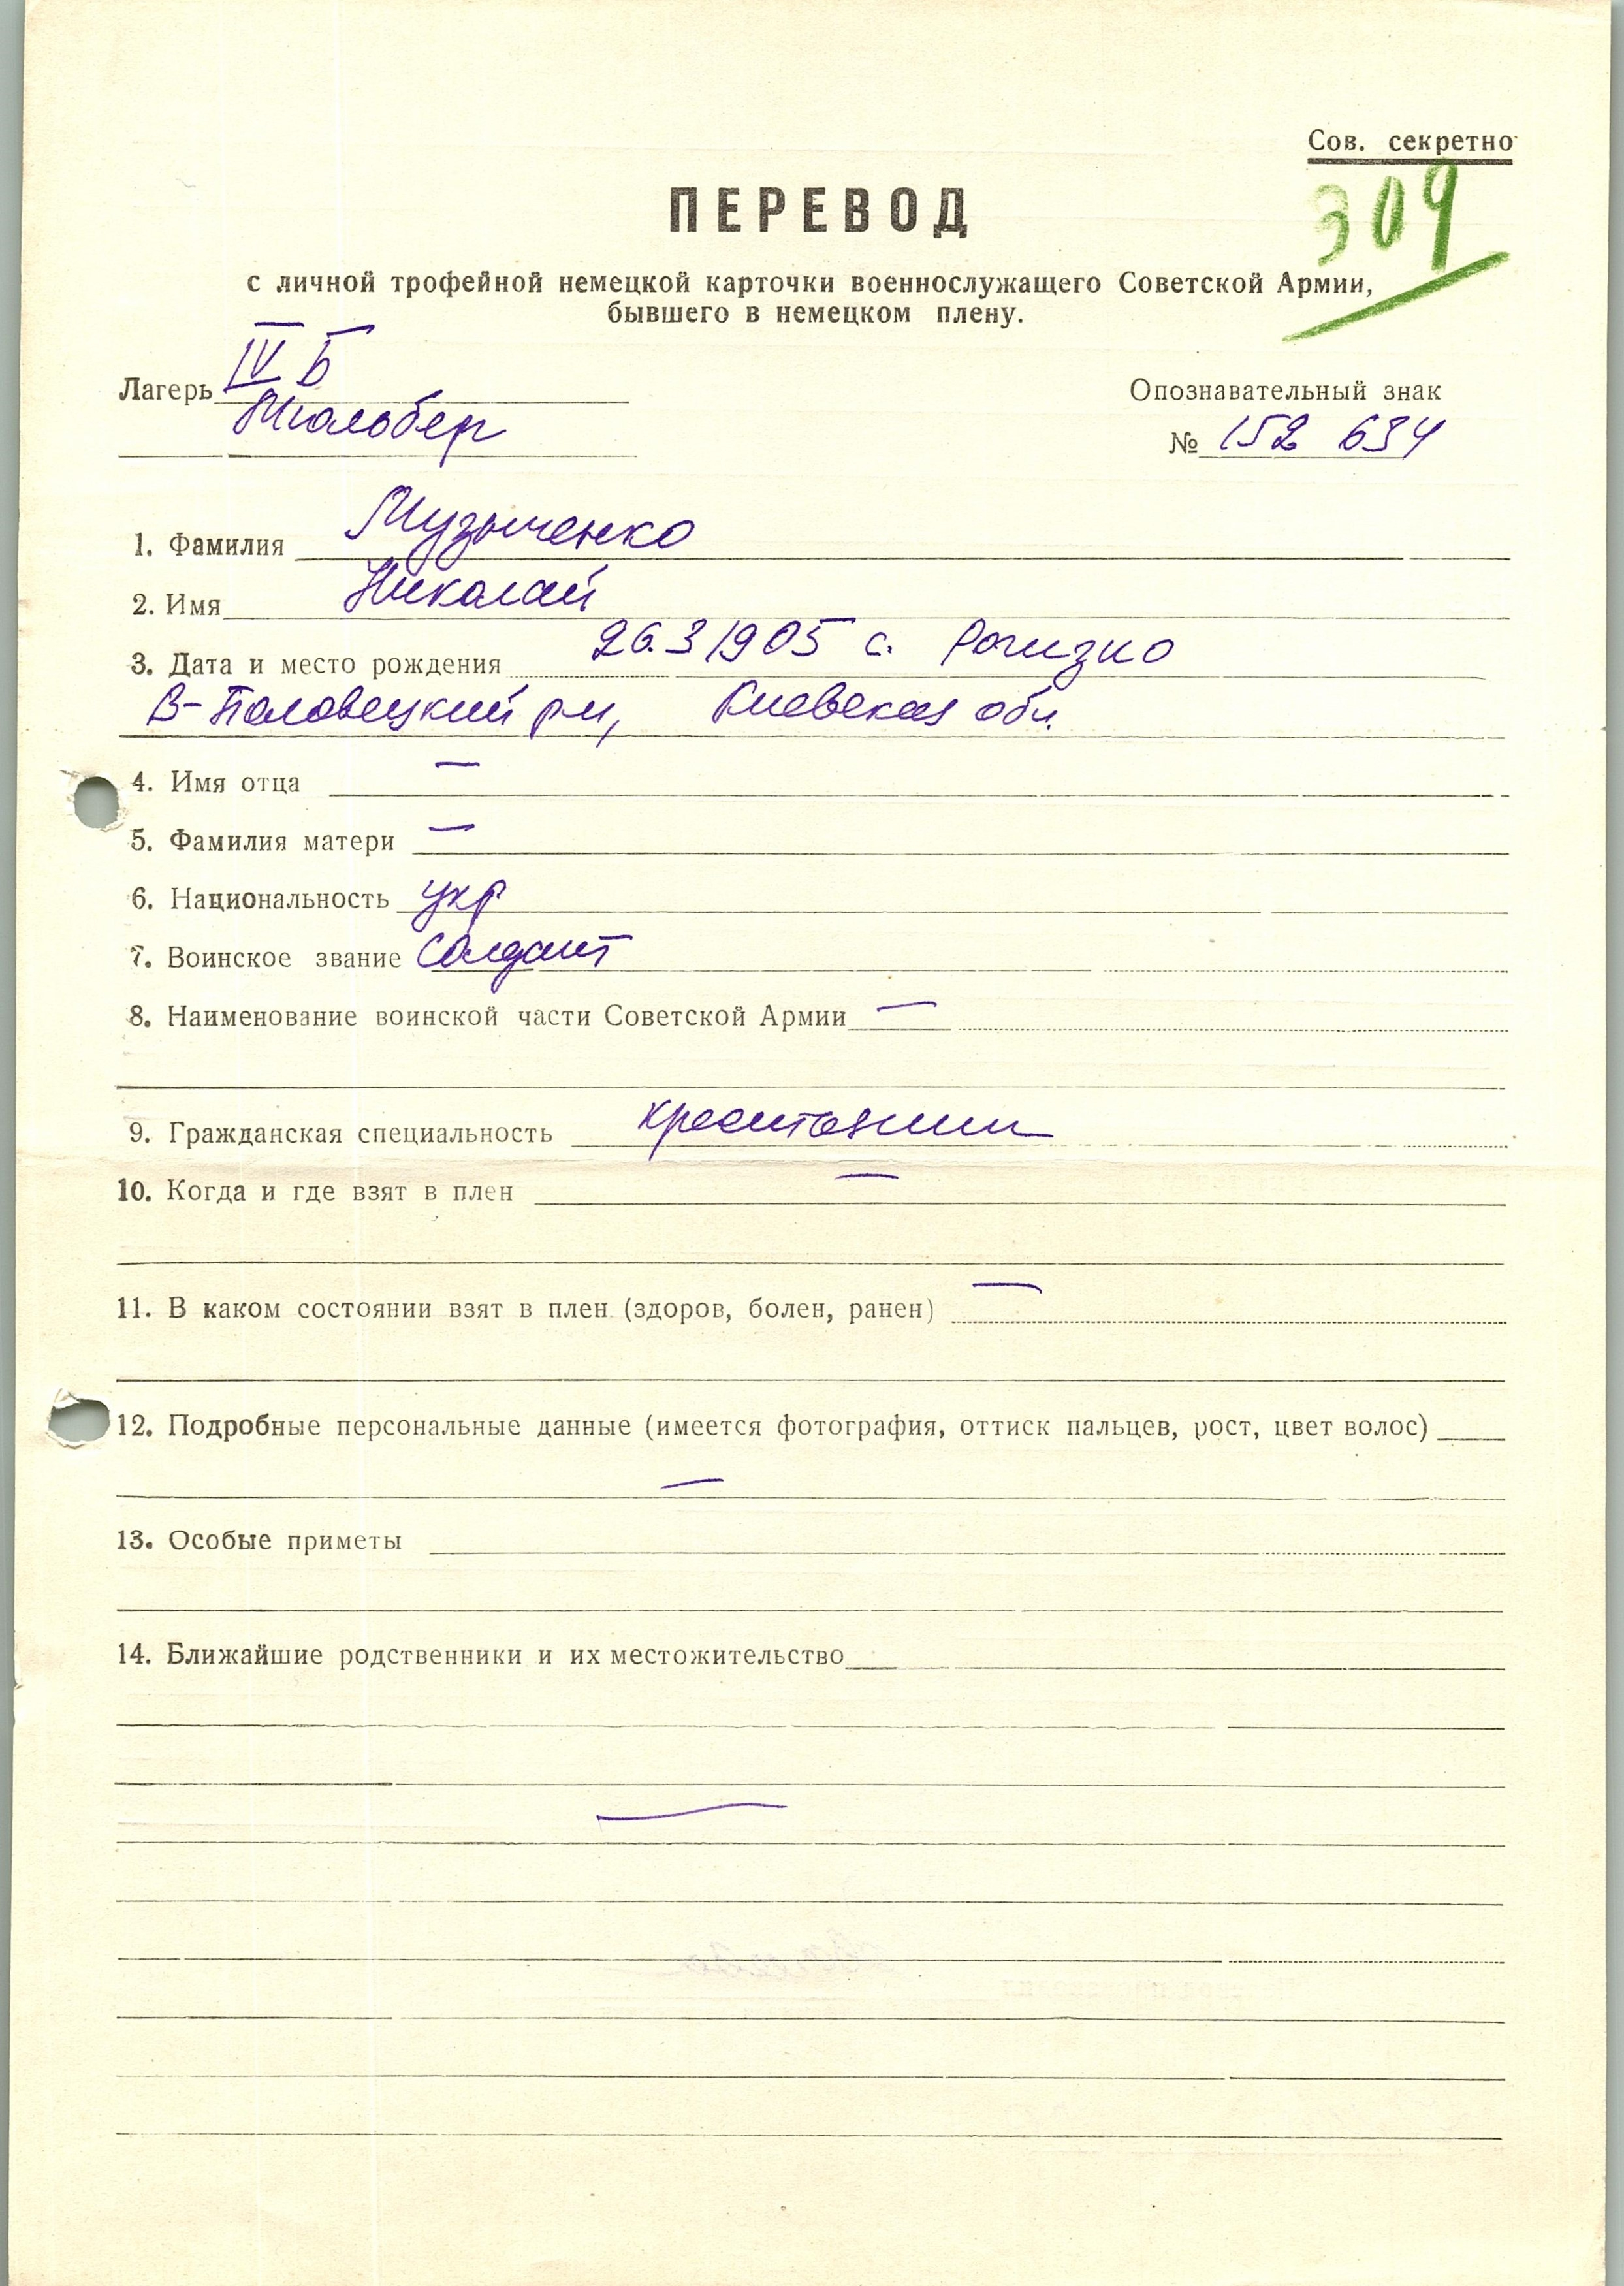 Сов. секретно
309
ПЕРЕВОД
с личной трофейной немецкой карточки военнослужащего Советской Армии,
бывшего в немецком плену.
IV Б
Лагерь
Опознавательный знак
Мюльбер
№ 152 634
1. Фамилия Музыченко
2. Имя Николай
3. Дата и место рождения 26.3 1905 с.
В-Половецкий рн, Киевская обл.
4. Имя отца —
5. Фамилия матери —
6. Национальность укр
7. Воинское звание Солдат
8. Наименование воинской части Советской Армии —
9. Гражданская специальность крестьянин
10. Когда и где взят в плен —
11. В каком состоянии взят в плен (здоров, болен, ранен) —
12. Подробные персональные данные (имеется фотография, оттиск пальцев, рост, цвет волос)
—
13. Особые приметы
14. Ближайшие родственники и их местожительство
—